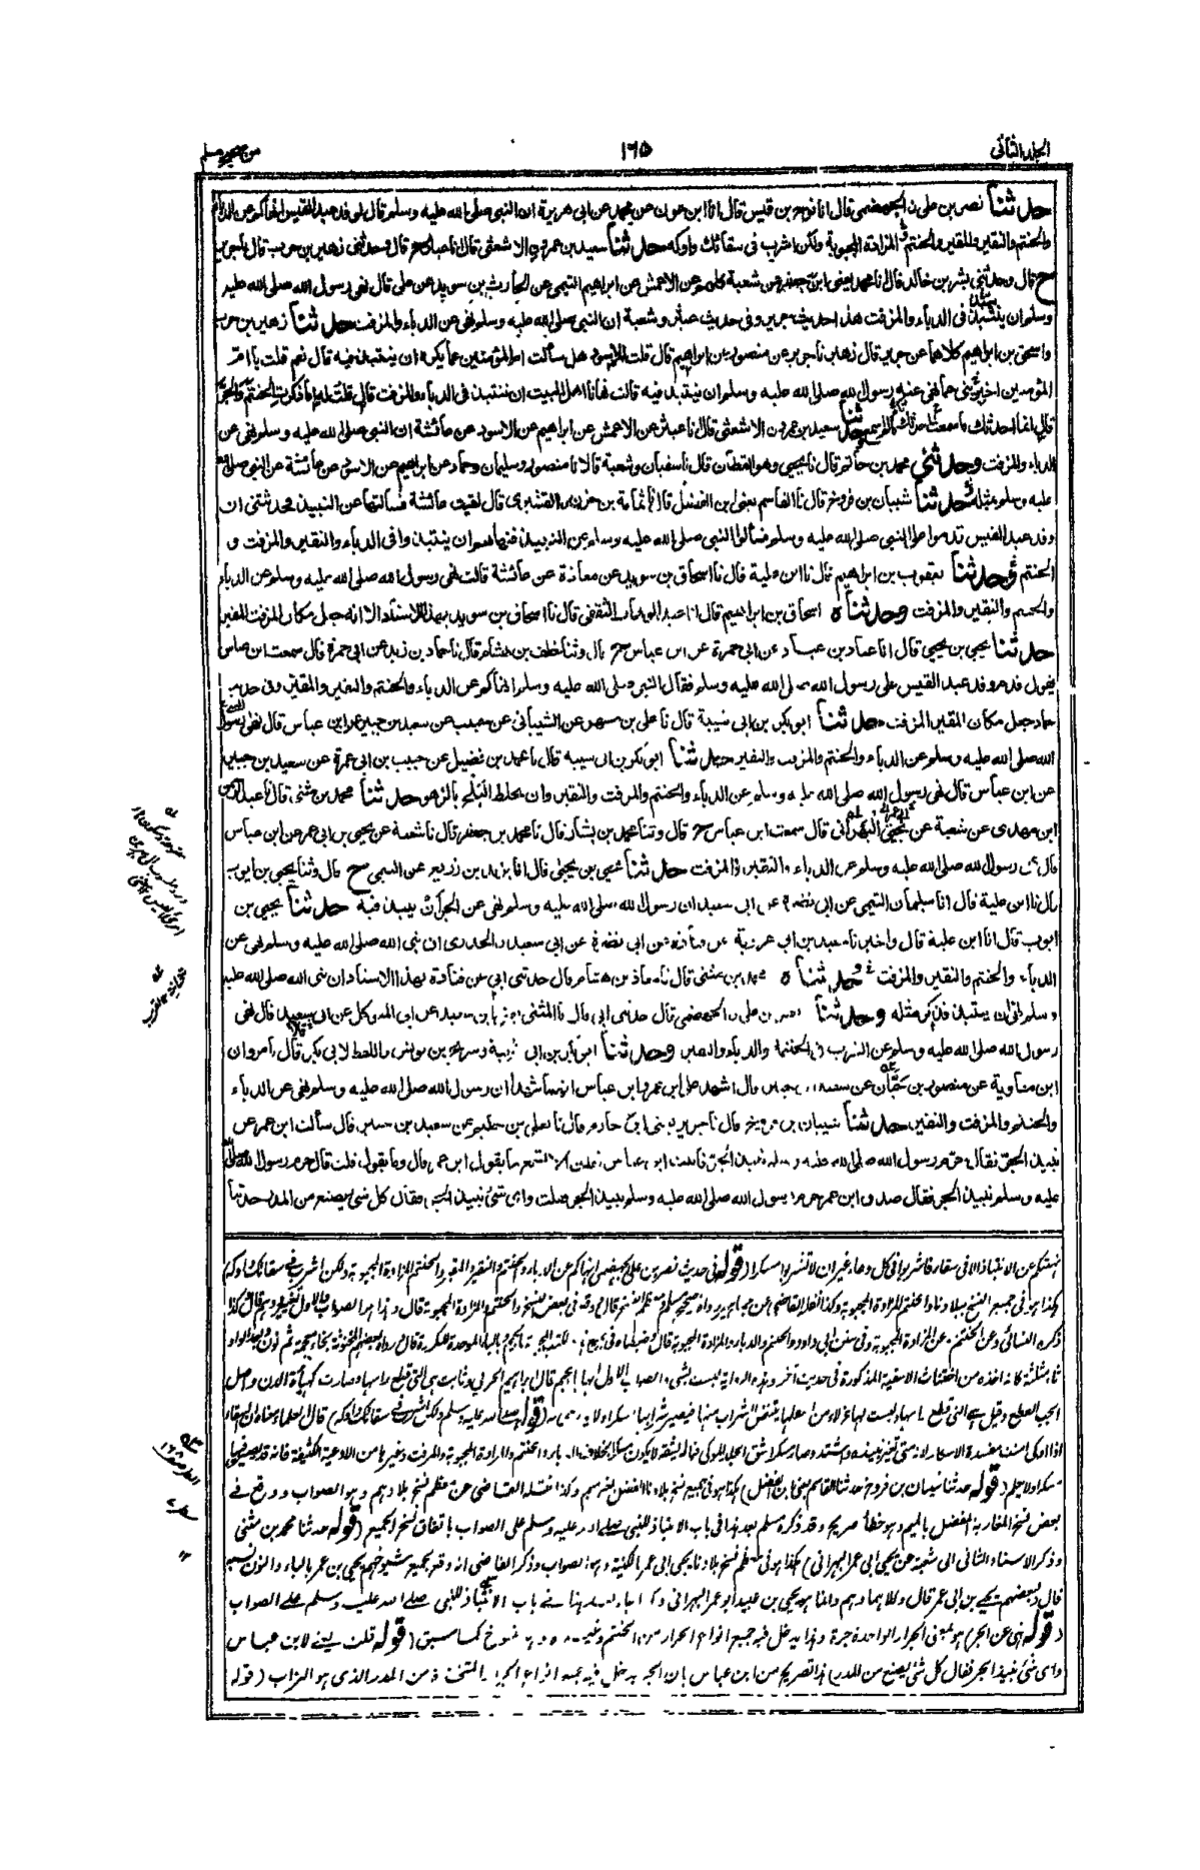 الجلد الثاني
١٦٥
من صحيح مسلم
حدثنا نصر بن علي الجهضمي قال انا نوح بن قيس قال انا ابن عون عن محمد عن ابي هريرة ان النبي صلى الله عليه وسلم قال لوفد عبد القيس انهاكم عن الدباء
والحنتم والنقير والمقير والحنتم المزادة المجبوبة ولكن اشرب في سقائك واوكه حدثنا سعيد بن عمرو الاشعثي قال انا عبثر ح قال وحدثني زهير بن حرب قال نا جرير
ح قال وحدثني بشر بن خالد قال انا محمد يعني ابن جعفر عن شعبة كلهم عن الاعمش عن ابراهيم التيمي عن الحارث بن سويد عن علي قال نهى رسول الله صلى الله عليه
وسلم ان ينتبذ في الدباء والمزفت هذا حديث جرير وفي حديث عبثر وشعبة ان النبي صلى الله عليه وسلم نهى عن الدباء والمزفت حدثنا زهير بن حرب
واسحق بن ابراهيم كلاهما عن جرير قال زهير نا جرير عن منصور عن ابراهيم قال قلت للاسود هل سألت ام المؤمنين عما يكره ان ينتبذ فيه قال نعم قلت يا ام
المؤمنين اخبريني عما نهى عنه رسول الله صلى الله عليه وسلم ان ينتبذ فيه قالت نهانا اهل البيت ان ننتبذ في الدباء والمزفت قال قلت له اما ذكرت الحنتم والجر
قال انما احدثك ما سمعت احدثك ما لم اسمع وحدثنا سعيد بن عمرو الاشعثي قال نا عبثر عن الاعمش عن ابراهيم عن الاسود عن عائشة ان النبي صلى الله عليه وسلم نهى عن
الدباء والمزفت وحدثني محمد بن حاتم قال نا يحيى وهو القطان قال نا سفيان وشعبة قالا نا منصور وسليمان وحماد عن ابراهيم عن الاسود عن عائشة عن النبي صلى الله
عليه وسلم مثله حدثنا شيبان بن فروخ قال نا القاسم يعني ابن الفضل قال نا ثمامة بن حزن القشيري قال لقيت عائشة فسألتها عن النبيذ فحدثتني ان
وفد عبد القيس قدموا على النبي صلى الله عليه وسلم فسألوا النبي صلى الله عليه وسلم عن النبيذ فنهاهم ان ينتبذوا في الدباء والنقير والمزفت و
الحنتم وحدثنا يعقوب بن ابراهيم قال نا ابن علية قال نا اسحاق بن سويد عن معاذة عن عائشة قالت نهى رسول الله صلى الله عليه وسلم عن الدباء
والحنتم والنقير والمزفت وحدثناه اسحاق بن ابراهيم قال انا عبد الوهاب الثقفي قال نا اسحاق بن سويد بهذا الاسناد الا انه جعل مكان المزفت المقير
حدثنا يحيى بن يحيى قال انا عباد بن عباد عن ابي جمرة عن ابن عباس ح قال وثنا خلف بن هشام قال نا حماد بن زيد عن ابي جمرة قال سمعت ابن عباس
يقول قدم وفد عبد القيس على رسول الله صلى الله عليه وسلم فقال النبي صلى الله عليه وسلم انهاكم عن الدباء والحنتم والنقير والمقير وفي حديث
حماد جعل مكان المقير المزفت حدثنا ابو بكر بن ابي شيبة قال نا علي بن مسهر عن الشيباني عن حبيب عن سعيد بن جبير عن ابن عباس قال نهى رسول
الله صلى الله عليه وسلم عن الدباء والحنتم والمزفت والنقير حدثنا ابو بكر بن ابي شيبة قال نا محمد بن فضيل عن حبيب بن ابي عمرة عن سعيد بن جبير
عن ابن عباس قال نهى رسول الله صلى الله عليه وسلم عن الدباء والحنتم والمزفت والنقير وان يخلط البلح بالزهو حدثنا محمد بن مثنى قال نا عبد الرحمن
ابن مهدي عن شعبة عن يحيى البهراني قال سمعت ابن عباس ح قال وثنا محمد بن بشار قال نا محمد بن جعفر قال نا شعبة عن يحيى بن ابي عمر عن ابن عباس
قال نهى رسول الله صلى الله عليه وسلم عن الدباء والنقير والمزفت حدثنا يحيى بن يحيى قال انا يزيد بن زريع عن التيمي ح قال وثنا يحيى بن ايوب
قال نا ابن علية قال انا سليمان التيمي عن ابي نضرة عن ابي سعيد ان رسول الله صلى الله عليه وسلم نهى عن الجر ان ينبذ فيه حدثنا يحيى بن
ايوب قال انا ابن علية قال واخبرنا سعيد بن ابي عروبة عن قتادة عن ابي نضرة عن ابي سعيد الخدري ان نبي الله صلى الله عليه وسلم نهى عن
الدباء والحنتم والنقير والمزفت وحدثناه محمد بن مثنى قال نا معاذ بن هشام قال حدثني ابي عن قتادة بهذا الاسناد ان نبي الله صلى الله عليه
وسلم نهى ان ينتبذ فذكر مثله وحدثنا نصر بن علي الجهضمي قال حدثني ابي قال نا المثنى يعني ابن سعيد عن ابي المتوكل عن ابي سعيد قال نهى
رسول الله صلى الله عليه وسلم عن الشرب في الحنتمة والدباء والنقير وحدثنا ابو بكر بن ابي شيبة وسريج بن يونس واللفظ لابي بكر قالا نا مروان
ابن معاوية عن منصور بن حيان عن سعيد بن جبير قال اشهد على ابن عمر وابن عباس انهما شهدا ان رسول الله صلى الله عليه وسلم نهى عن الدباء
والحنتم والمزفت والنقير حدثنا شيبان بن فروخ قال نا جرير يعني ابن حازم قال نا يعلى بن حكيم عن سعيد بن جبير قال سألت ابن عمر عن
نبيذ الجر فقال حرم رسول الله صلى الله عليه وسلم نبيذ الجر فاتيت ابن عباس فقلت الا تسمع ما يقول ابن عمر قال وما يقول قلت قال حرم رسول الله صلى الله
عليه وسلم نبيذ الجر فقال صدق ابن عمر حرم رسول الله صلى الله عليه وسلم نبيذ الجر فقلت واي شئ نبيذ الجر فقال كل شئ يصنع من المدر حدثنا
نهيتكم عن الانتباذ الا في سقاء فاشربوا في كل وعاء غير ان لا تشربوا مسكرا (قوله في حديث نصر بن علي الجهضمي انهاكم عن الدباء والحنتم والنقير والمقير والحنتم المزادة المجبوبة ولكن اشرب في سقائك واوكه)
هكذا هو في جميع النسخ ببلادنا والحنتم المزادة المجبوبة وكذا نقله القاضي عن جماهير رواة صحيح مسلم ومعظم النسخ قال ووقع في بعض النسخ والحنتم والمزادة المجبوبة قال وهذا هو الصواب والاول تغيير ووهم قال وكذا
ذكره النسائي وعن الحنتم وعن المزادة المجبوبة وفي سنن ابي داود والحنتم والدباء والمزادة المجبوبة قال وضبطناه في جميع هذه الكتب المجبوبة بالجيم وبالباء الموحدة المكررة قال ورواه بعضهم المخنوثة بخاء معجمة ثم نون وبعد الواو
ثاء مثلثة كانه اخذه من اختناث الاسقية المذكورة في حديث آخر وهذه الرواية ليست بشئ والصواب الاول انها بالجيم قال ابراهيم الحربي وثابت هي التي قطع راسها وصارت كهيأة الدن واصل
الجب القطع وقيل هي التي قطع راسها وليست لها عزلاء من اسفلها يتنفس الشراب منها فيصير شرابها مسكرا ولا يدرى به (قوله صلى الله عليه وسلم ولكن اشرب في سقائك واوكه) قال العلماء معناه ان السقاء
اذا اوكي امنت مفسدة الاسكار لانه متى تغير نبيذه واشتد وصار مسكرا شق الجلد الموكى فما لم يشقه لا يكون مسكرا بخلاف الدباء والحنتم والمزادة المجبوبة والمزفت وغيرها من الاوعية الكثيفة فانه قد يصير فيها
مسكرا ولا يعلم (قوله حدثنا شيبان بن فروخ حدثنا القاسم يعني ابن الفضل) هكذا هو في جميع نسخ بلادنا الفضل بغير ميم وكذا نقله القاضي عن معظم نسخ بلادهم وهو الصواب ووقع في
بعض نسخ المغاربة المفضل بالميم وهو خطأ صريح وقد ذكره مسلم بعد هذا في باب الانتباذ للنبي صلى الله عليه وسلم على الصواب باتفاق نسخ الجميع (قوله حدثنا محمد بن مثنى
وذكر الاسناد الثاني الى شعبة عن يحيى ابي عمر البهراني) هكذا هو في معظم نسخ بلادنا يحيى ابي عمر بالكنية وهو الصواب وذكر القاضي انه وقع لجميع شيوخهم يحيى بن عمر بالباء والنون نسبه
قال ولبعضهم يحيى بن ابي عمر قال وكلاهما وهم وانما هو يحيى بن عبيد ابو عمر البهراني وكذا جاء بعد هذا في باب الانتباذ للنبي صلى الله عليه وسلم على الصواب
(قوله نهى عن الجر) هو بمعنى الجرار الواحدة جرة وهذا يدخل فيه جميع انواع الجرار من الحنتم وغيره وهو منسوخ كما سبق (قوله قلت يعني لابن عباس
واي شئ نبيذ الجر فقال كل شئ يصنع من المدر) هذا تصريح من ابن عباس بان الجر يدخل فيه جميع انواع الجرار المتخذة من المدر الذي هو التراب (قوله